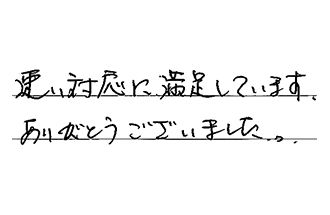 速い対応に満足しています。
ありがとうございました。。